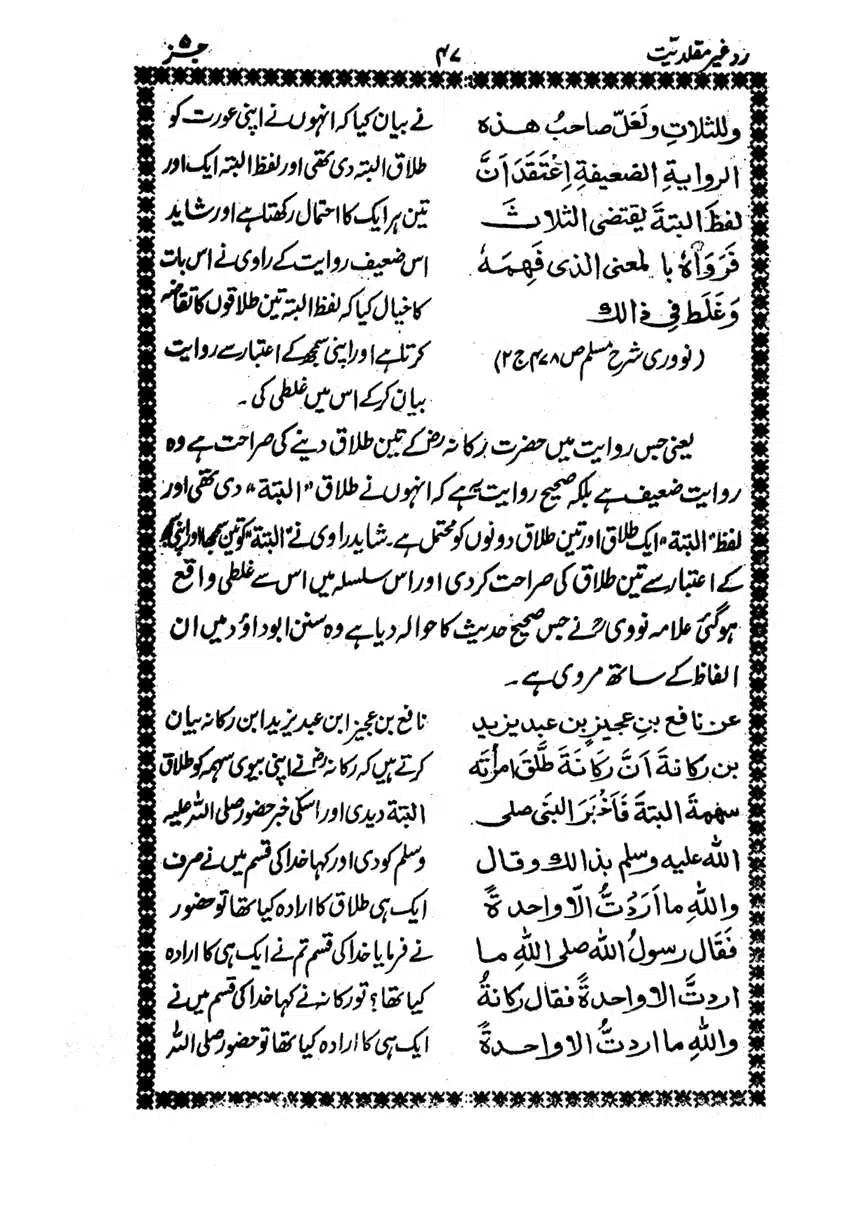 رد غیر مقلدیت
۴۷
جز ۵
وللثلاثِ ولَعَلّ صاحبُ هذه
الروايةِ الضعيفةِ اِعْتَقَدَ اَنَّ
لفظَ البتةَ يقتضى الثلاث
فَرَوَاهُ بالمعنى الذى فَهِمَهُ
وَغَلَطَ فِي ذالك
(نووری شرح مسلم ص ۴۷۸ ج ۲)
نے بیان کیا کہ انہوں نے اپنی عورت کو
طلاق البتہ دی تھی اور لفظ البتہ ایک اور
تین ہر ایک کا احتمال رکھتا ہے اور شاید
اس ضعیف روایت کے راوی نے اس بات
کا خیال کیا کہ لفظ البتہ تین طلاقوں کا تقاضہ
کرتا ہے اور اپنی سمجھ کے اعتبار سے روایت
بیان کرکے اس میں غلطی کی ۔
یعنی جس روایت میں حضرت رکانہ رضؓ کے تین طلاق دینے کی صراحت ہے وہ
روایت ضعیف ہے بلکہ صحیح روایت یہ ہے کہ انہوں نے طلاق "البتة" دی تھی اور
لفظ "البتة" ایک طلاق اور تین طلاق دونوں کو محتمل ہے۔ شاید راوی نے "البتة" کو تین سمجھا اور اپنی سمجھ
کے اعتبار سے تین طلاق کی صراحت کردی اور اس سلسلہ میں اس سے غلطی واقع
ہوگئی علامہ نووی رحؒ نے جس صحیح حدیث کا حوالہ دیا ہے وہ سنن ابو داؤد میں ان
الفاظ کے ساتھ مروی ہے ۔
عن نافع بنِ عجيزِ بنِ عبديزيد
بن ركانةَ اَنَّ رَكَانَةَ طَلَّقَ امرأته
سهمةَ البتةَ فَاَخْبَرَ النبى صلى
الله عليه وسلم بذالك وقال
واللهِ ما اَرَدْتُّ الّا واحدةً
فَقَال رسولُ الله صلى اللهِ ما
اردتَّ الا واحدةً فقال ركانةُ
واللهِ ما اردتُّ الا واحدةً
نافع بن عجیز ابن عبدیزید ابن رکانہ بیان
کرتے ہیں کہ رکانہ رضؓ نے اپنی بیوی سہمہ کو طلاق
البتة دیدی اور اسکی خبر حضور صلی اللہ علیہ
وسلم کو دی اور کہا خدا کی قسم میں نے صرف
ایک ہی طلاق کا ارادہ کیا تھا تو حضور
نے فرمایا خدا کی قسم تم نے ایک ہی کا ارادہ
کیا تھا؟ تو رکانہ نے کہا خدا کی قسم میں نے
ایک ہی کا ارادہ کیا تھا تو حضور صلی اللہ